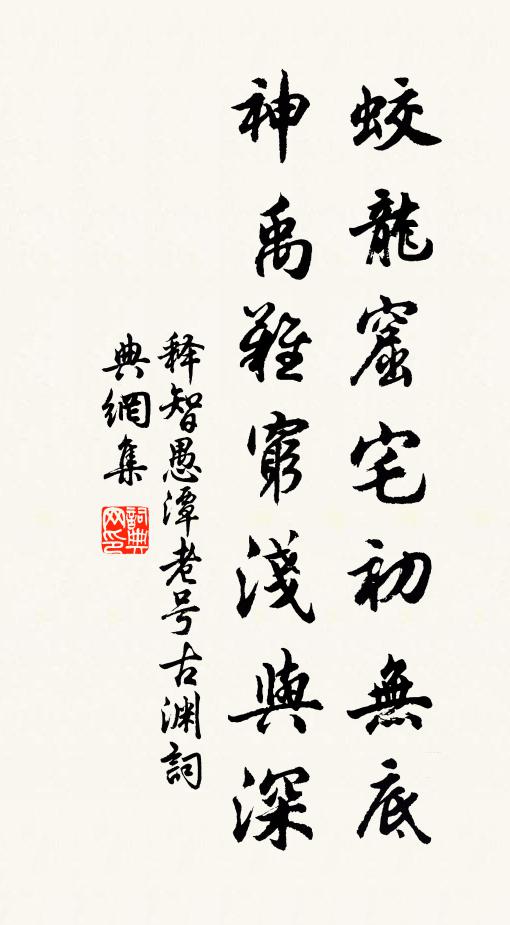 蛟龍窟宅初無底
神禹難窮淺與深
释智愚潭老号古渊詞
典網集
詞典網印